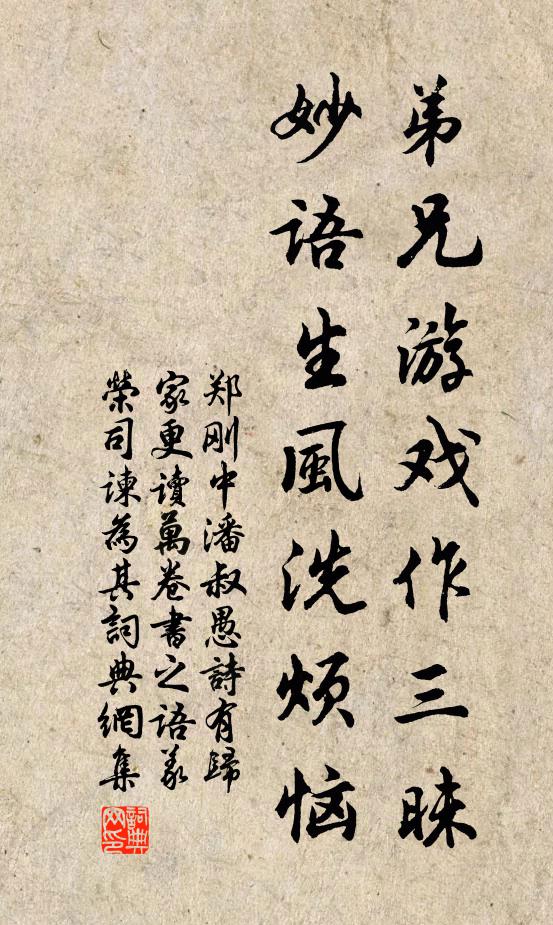 弟兄游戏作三昧
妙语生風洗烦恼
郑刚中潘叔愚詩有歸
家更讀萬卷書之语义
榮司諫為其詞典網集
詞典
网印